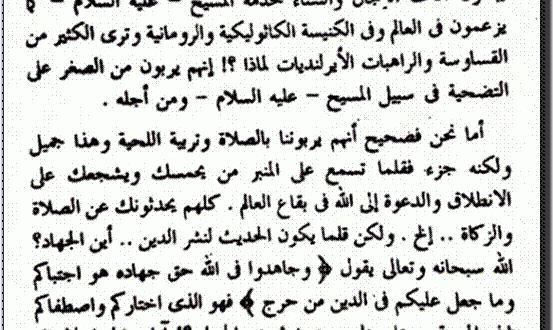 المسيح – عليه السلام –
يزعمون فى العالم وفى الكنيسة الكاثوليكية والرومانية وترى الكثير من
القساوسة والراهبات الأيرلنديات لماذا ؟! إنهم يربون من الصغر على
التضحية فى سبيل المسيح – عليه السلام – ومن أجله .
أما نحن فصحيح أنهم يربوننا بالصلاة وتربية اللحية وهذا جميل
ولكنه جزء فقلما تسمع على المنبر من يحمسك ويشجعك على
الانطلاق والدعوة إلى الله فى بقاع العالم . كلهم يحدثونك عن الصلاة
والزكاة .. إلخ . ولكن قلما يكون الحديث لنشر الدين .. أين الجهاد؟
الله سبحانه وتعالى يقول ﴿ وجاهدوا فى الله حق جهاده هو اجتباكم
وما جعل عليكم فى الدين من حرج ﴾ فهو الذى اختاركم واصطفاكم